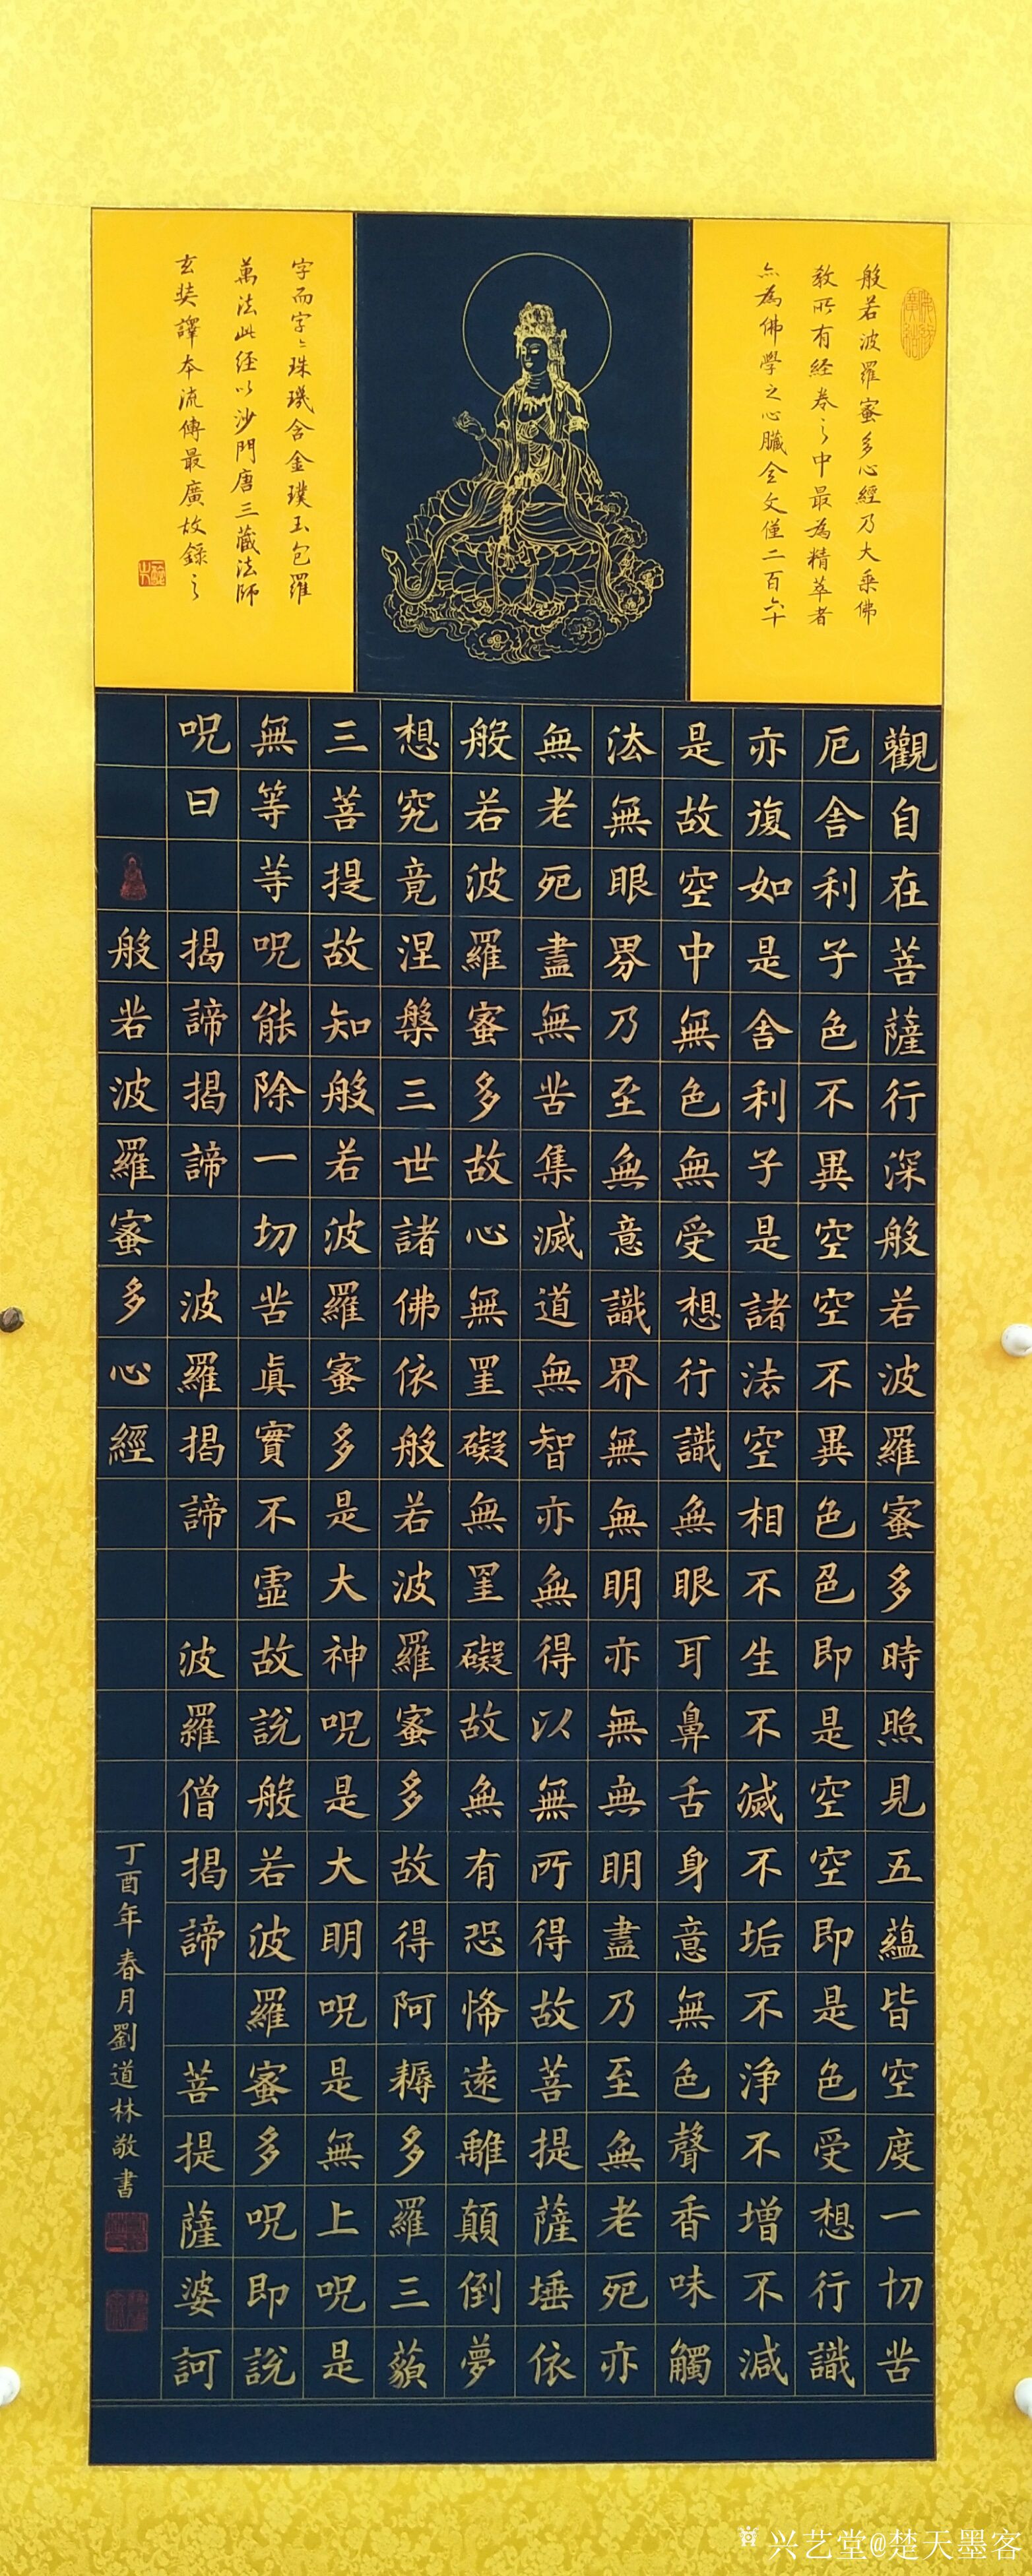 般若波羅蜜多心經乃大乘佛
教所有経卷之中最為精萃者
亦為佛學之心臟全文僅二百六十
字而字々珠璣含金璞玉包羅
萬法此経以沙門唐三藏法師
玄奘譯本流傳最廣故錄之
觀自在菩薩行深般若波羅蜜多時照見五蘊皆空度一切苦
厄舍利子色不異空空不異色色即是空空即是色受想行識
亦復如是舍利子是諸法空相不生不滅不垢不淨不增不減
是故空中無色無受想行識無眼耳鼻舌身意無色聲香味觸
法無眼界乃至無意識界無無明亦無無明盡乃至無老死亦
無老死盡無苦集滅道無智亦無得以無所得故菩提薩埵依
般若波羅蜜多故心無罣礙無罣礙故無有恐怖遠離顛倒夢
想究竟涅槃三世諸佛依般若波羅蜜多故得阿耨多羅三藐
三菩提故知般若波羅蜜多是大神呪是大明呪是無上呪是
無等等呪能除一切苦真實不虛故說般若波羅蜜多呪即說
呪曰 揭諦揭諦 波羅揭諦 波羅僧揭諦 菩提薩婆訶
般若波羅蜜多心經
丁酉年春月劉道林敬書
兴艺堂@楚天墨客